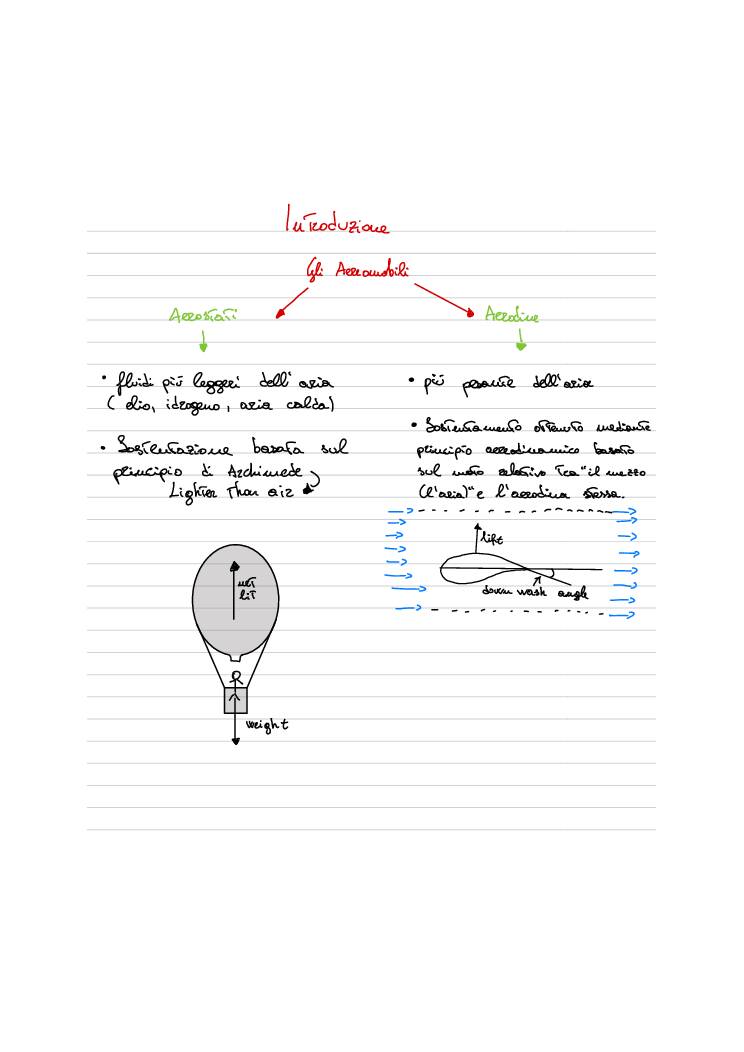 Introduzione
Gli Aeromobili
Aerostati
• fluidi più leggeri dell'aria
(elio, idrogeno, aria calda)
• Sostentazione basata sul
principio di Archimede
Lighter Than air
net
lift
weight
Aerodine
• più pesante dell'aria
• Sostentamento ottenuto mediante
principio aerodinamico basato
sul moto relativo tra "il mezzo
(l'aria)" e l'aerodina stessa.
lift
down wash angle